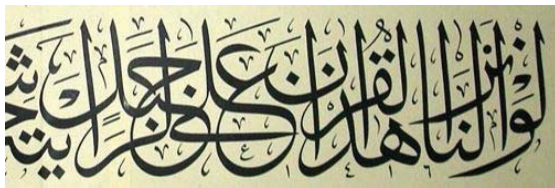 لو أنزلنا هذا القرآن على جبل لرأيته
١٤١٦